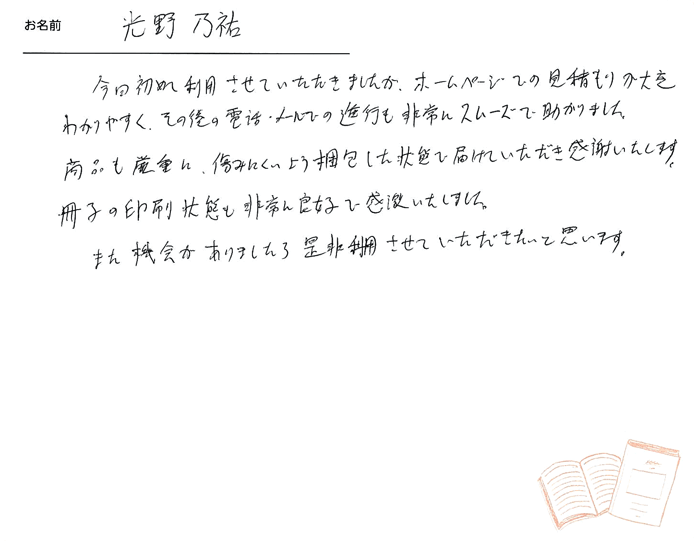 お名前 光野 乃祐
今回初めて利用させていただきましたが、ホームページでの見積もり方法も
わかりやすく、その後の電話・メールでの進行も非常にスムーズで助かりました。
商品も厳重に、傷みにくいよう梱包した状態で届けていただき感謝いたします。
冊子の印刷状態も非常に良好で感激いたしました。
また機会がありましたら是非利用させていただきたいと思います。